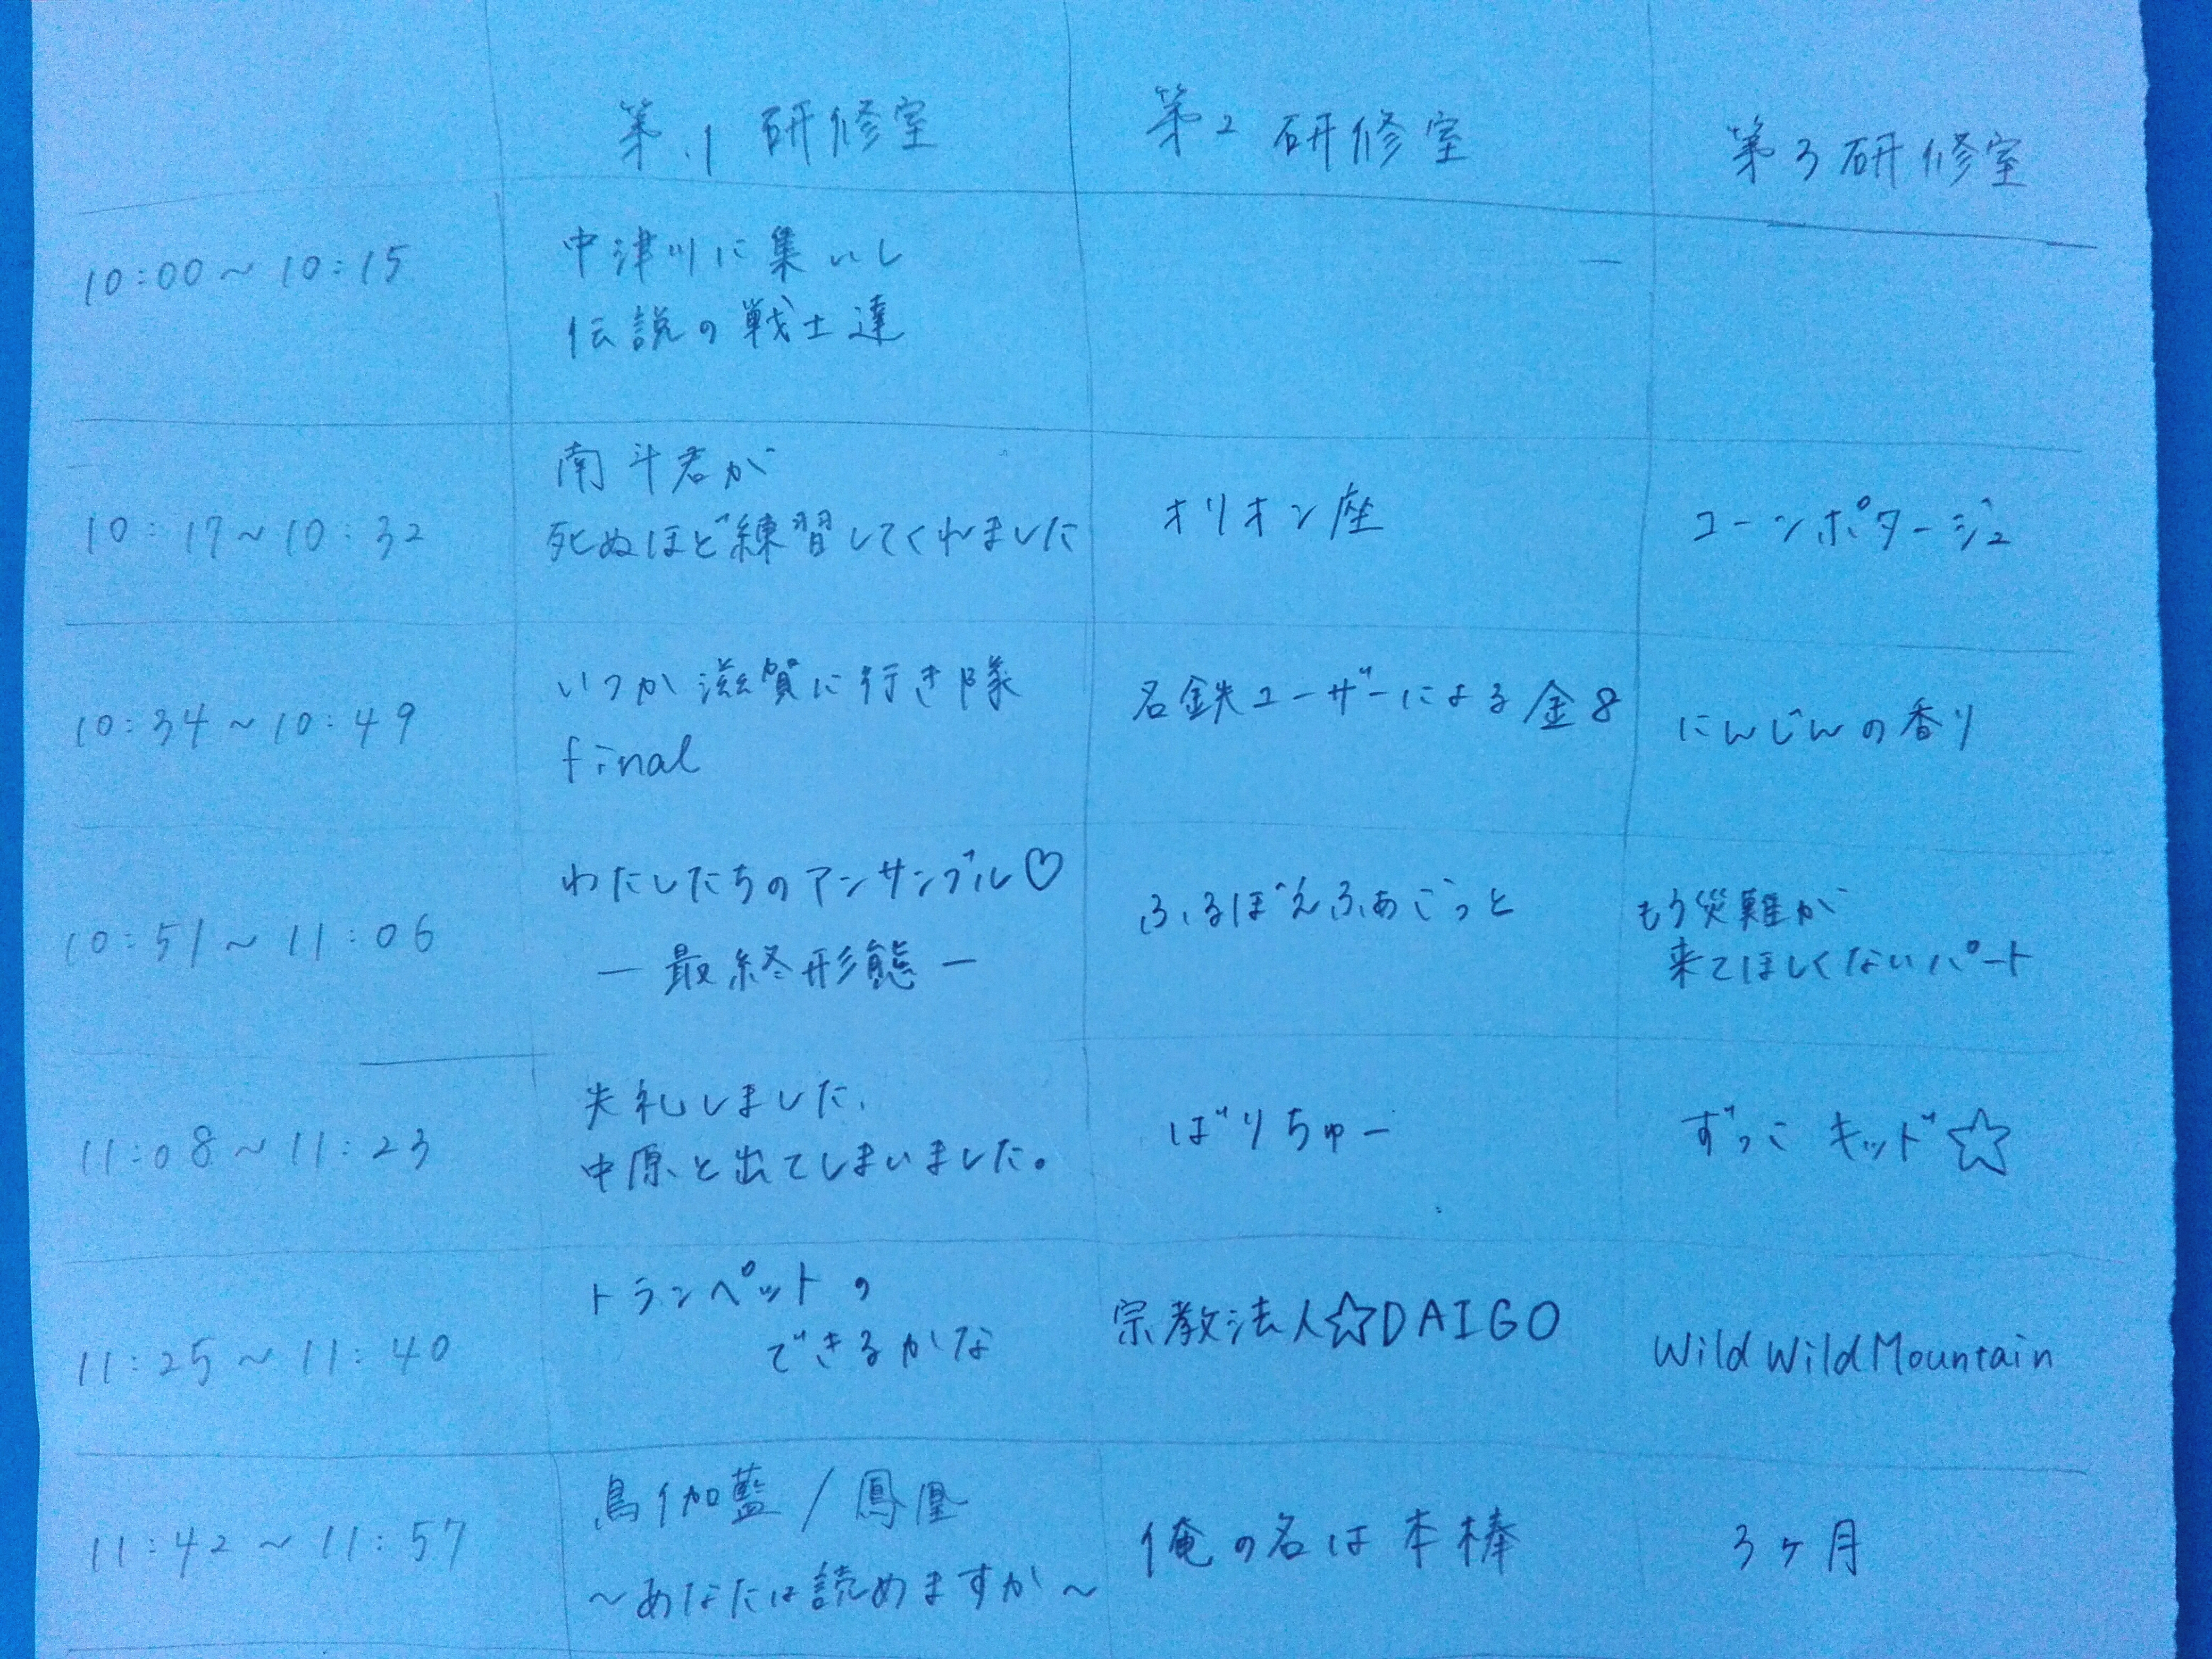 第1研修室 第2研修室 第3研修室
10:00～10:15
中津川に集いし
伝説の戦士達
10:17～10:32
南斗君が
死ぬほど練習してくれました
オリオン座
コーンポタージュ
10:34～10:49
いつか滋賀に行き隊
final
名鉄ユーザーによる金8
にんじんの香り
10:51～11:06
わたしたちのアンサンブル♡
－最終形態－
ふるぼえふぁごっと
もう災難が
来てほしくないパート
11:08～11:23
失礼しました、
中原と出てしまいました。
ばりちゅー
ずっこキッド☆
11:25～11:40
トランペットの
できるかな
宗教法人☆DAIGO
Wild Wild Mountain
11:42～11:57
鳥伽藍/鳳凰
～あなたは読めますか～
俺の名は本棒
3ヶ月